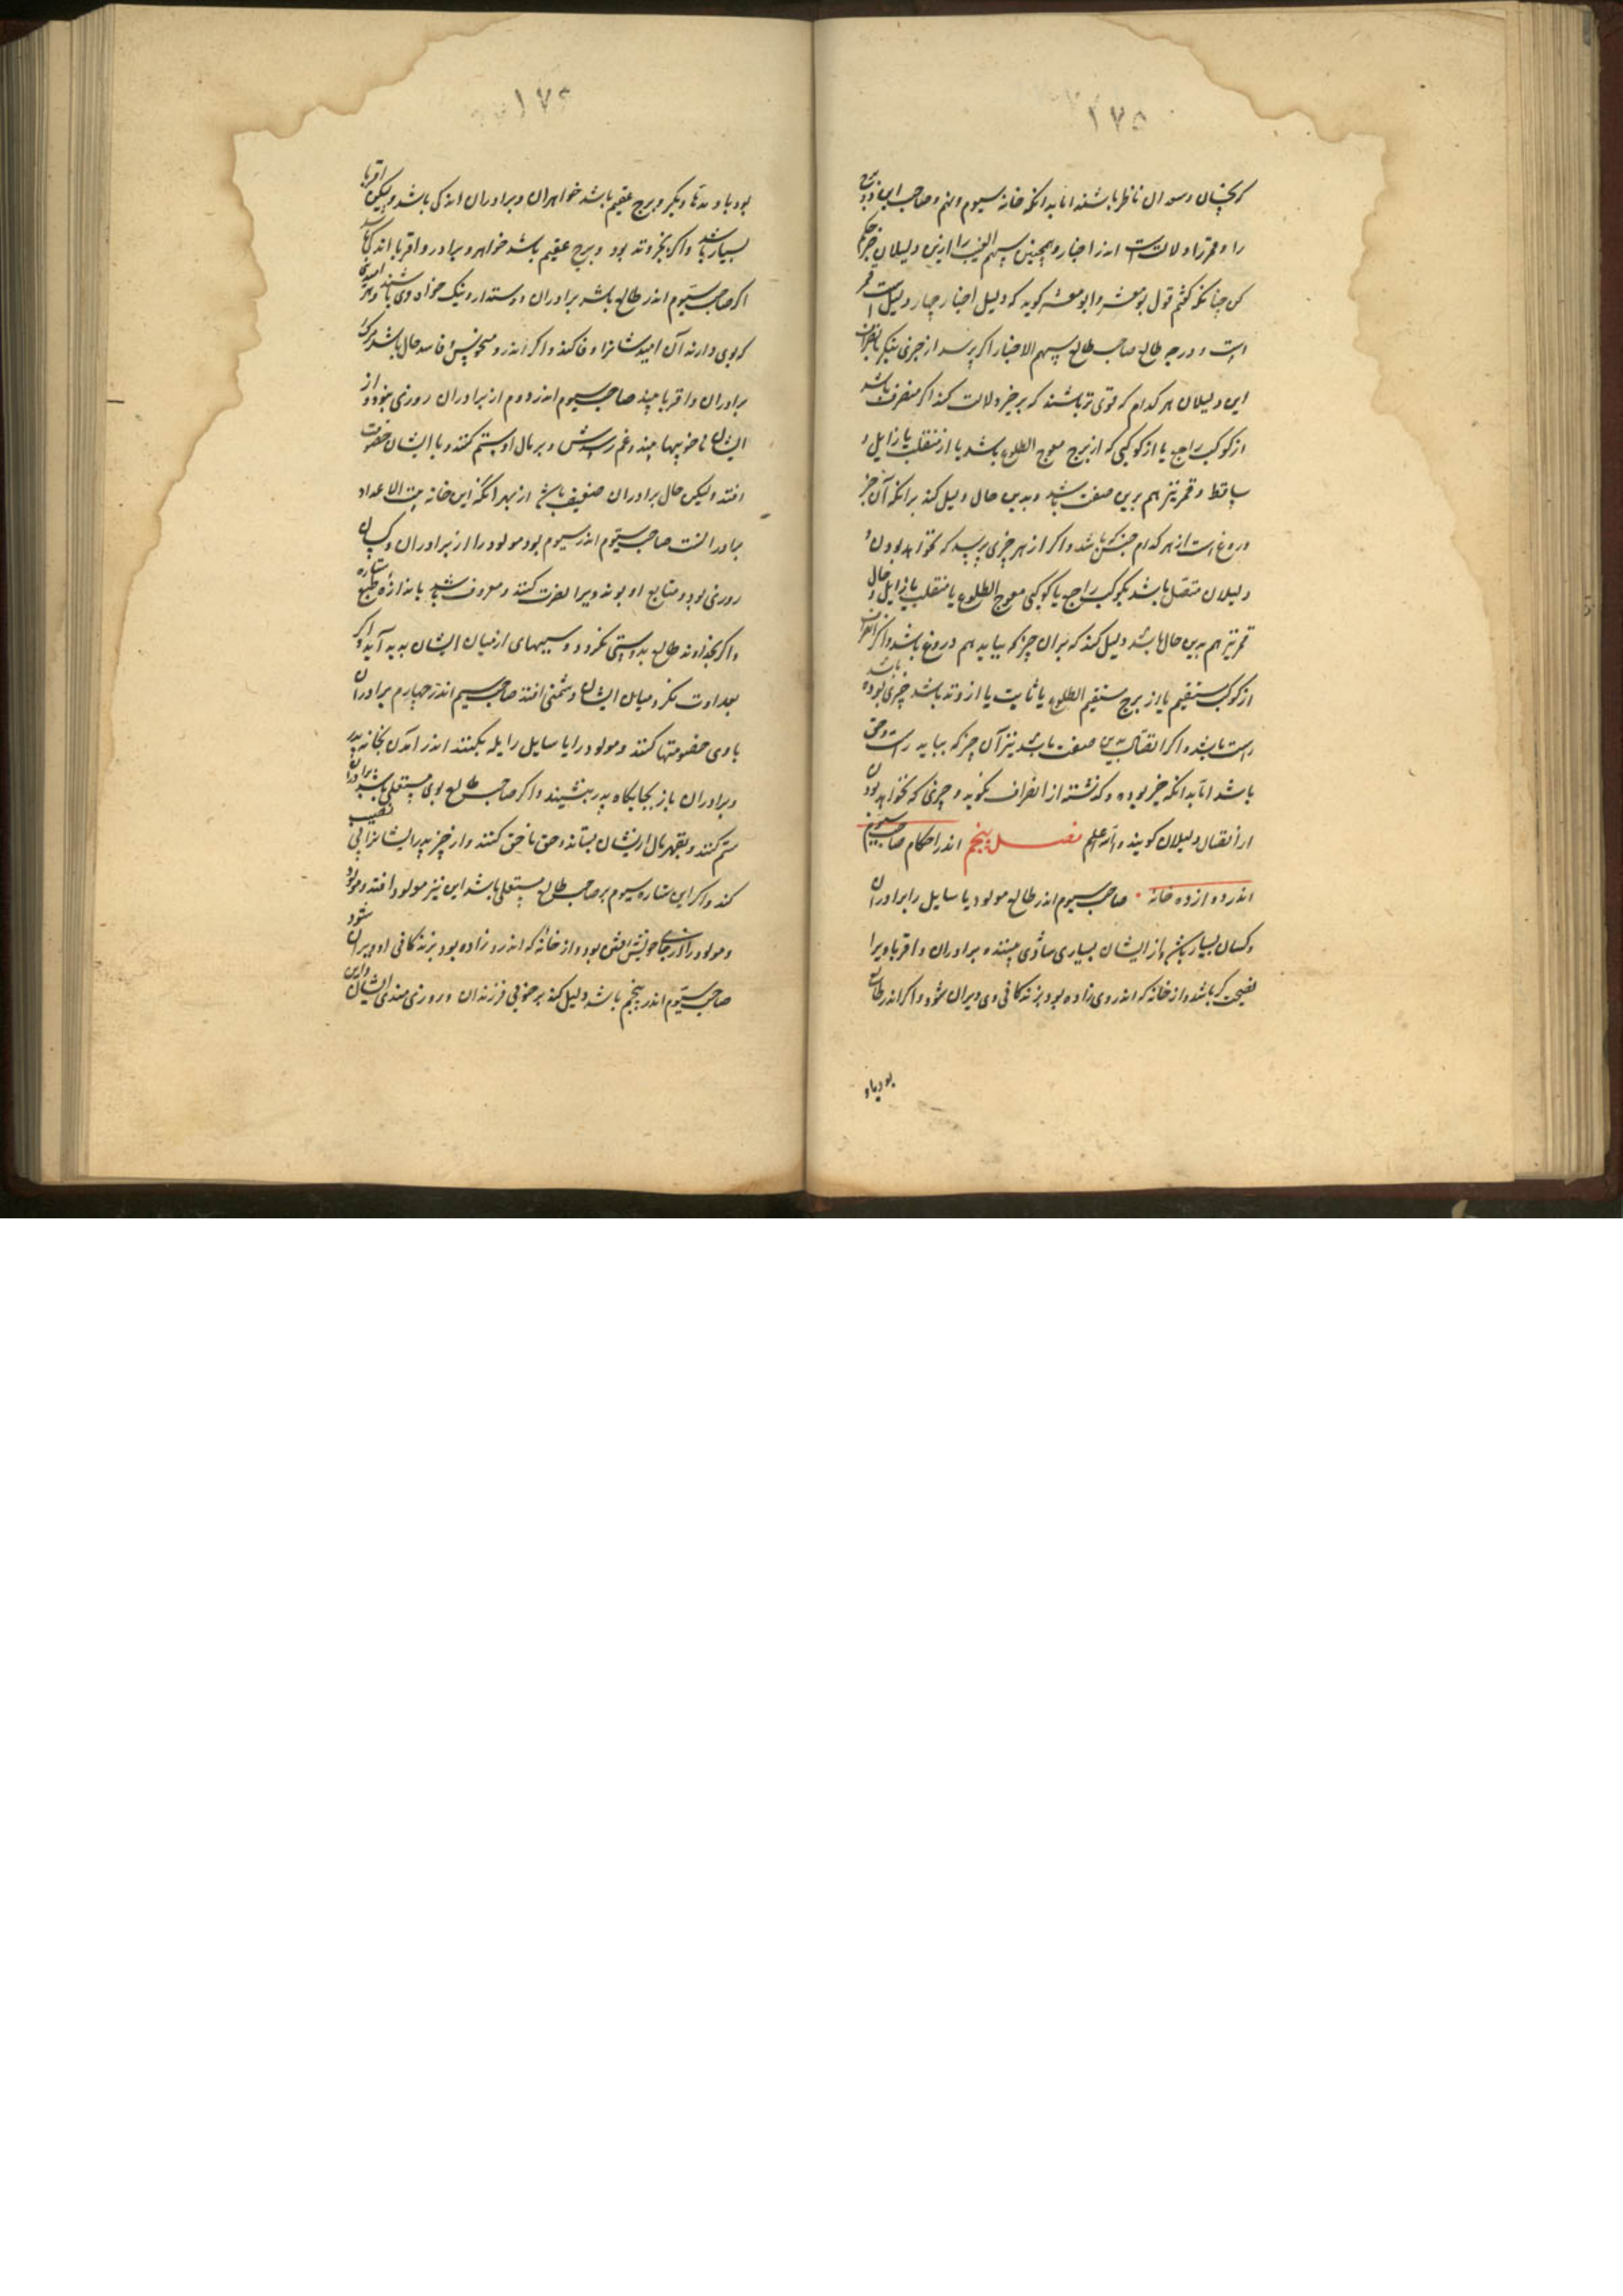 ۱۷۵
که نحسان و سعدان ناظر باشند اما بدانکه خانه سیوم و نهم و صاحب این دو برج
را و قمر را دلالت است اندر اخبار و همچنین سهم الغیب را ازین دلیلان خبر حکم
کن چنانکه گفتم قول بومعشر و ابو معشر گوید که دلیل اخبار چهار دلیل است قمر
است و درجه طالع صاحب طالع سهم الاخبار اگر پرسد از خبری بنگر تا
این دلیلان هر کدام که قوی تر باشند که بر خبر دلالت کند اگر منصرف باشد
از کوکب راجع یا از کوکبی که از برج معوج الطلوع باشد یا از منقلب یا زایل و
ساقط و قمر نیز هم برین صفت باشد و بدین حال دلیل کند برانکه آن خبر
دروغ است از هر کدام جنس که باشد و اگر از هر چیزی پرسد که بخواهد بودن و
دلیلان متصل باشد بکوکب راجع یا کوکبی معوج الطلوع یا منقلب یا زایل و حال
قمر نیز هم بدین حال باشد دلیل کند که بر ان چیز که بیاید هم دروغ باشد و اگر انصراف
از کوکب مستقیم یا از برج مستقیم الطلوع یا ثابت یا از وتد باشد خبری بوده باشد
راست باشد و اگر اتصال بدین صفت باشد نیز آن چیز که بیاید راست و حق
باشد اما بدانکه خبر بوده و گذشته از انصراف گوید و چیزی که بخواهد بودن
از اتصال دلیلان گویند والله اعلم فصل پنجم اندر احکام صاحب سیوم
اندر دوازده خانه صاحب سیوم اندر طالع مولود یا سایل را برادران
و کسان بسیار باشد و از ایشان بسیاری شادی بیند و برادران و اقربا ویرا
نصیحت گر باشد و از خانه که اندر وی زاده بود بزندگانی وی ویران شود و اگر اندر طالع
بود با و
۱۷۶
بود با وتدها دیگر و برج عقیم باشد خواهران و برادران اندکی باشد ولیکن اقربا
بسیار باشد و اگر بجز وتد بود و برج عقیم باشد خواهر و برادر و اقربا اندکی باشد
اگر صاحب سیوم اندر طالع باشد برادران دوستدار و نیک خواه وی باشند و هر امیدی
که بوی دارند آن امیدشانرا وفا کند و اگر اندرو منحوس و فاسد حال باشد مرگ
برادران و اقربا بیند صاحب سیوم اندر دوم از برادران روزی نبود و از
ایشان ناخوبیها بیند و غم رسدش و بر مال او ستم کنند و با ایشان خصومت
افتد ولیکن حال برادران ضعیف باشد از بهر آنکه این خانه بیت الاعداد
برادرانست صاحب سیوم اندر سیوم بود مولود را از برادران و کسان
روزی بود و متابع او بوند ویرا نصرت کنند و معروف باشد باندازه طبع ستاره
و اگر بخداوند طالع بدوستی نگرد دوستیهای از میان ایشان پدید آید و اگر
بعداوت نگرد میان ایشان دشمنی افتد صاحب سیم اندر چهارم برادران
با وی خصومتها کنند و مولود را یا سایل را یله نکنند اندر آمدن بخانه پدر
و برادران باز بجایگاه پدر بنشینند و اگر صاحب طالع بوی مستعلی باشد برادرانرا
ستم کنند و بقهر مال ازیشان بستاند و حق ناحق کنند و از چیز پدر ایشانرا بی نصیب
کند و اگر این ستاره سیوم بر صاحب طالع مستعلی باشد این نیز مولود افتد و مولود
و مولود را از جای خویش نقش بود و از خانه که اندرو زاده بود بزندگانی او ویران شود
صاحب سیوم اندر پنجم باشد دلیل کند بر خوبی فرزندان و روزی مندی ایشان و این